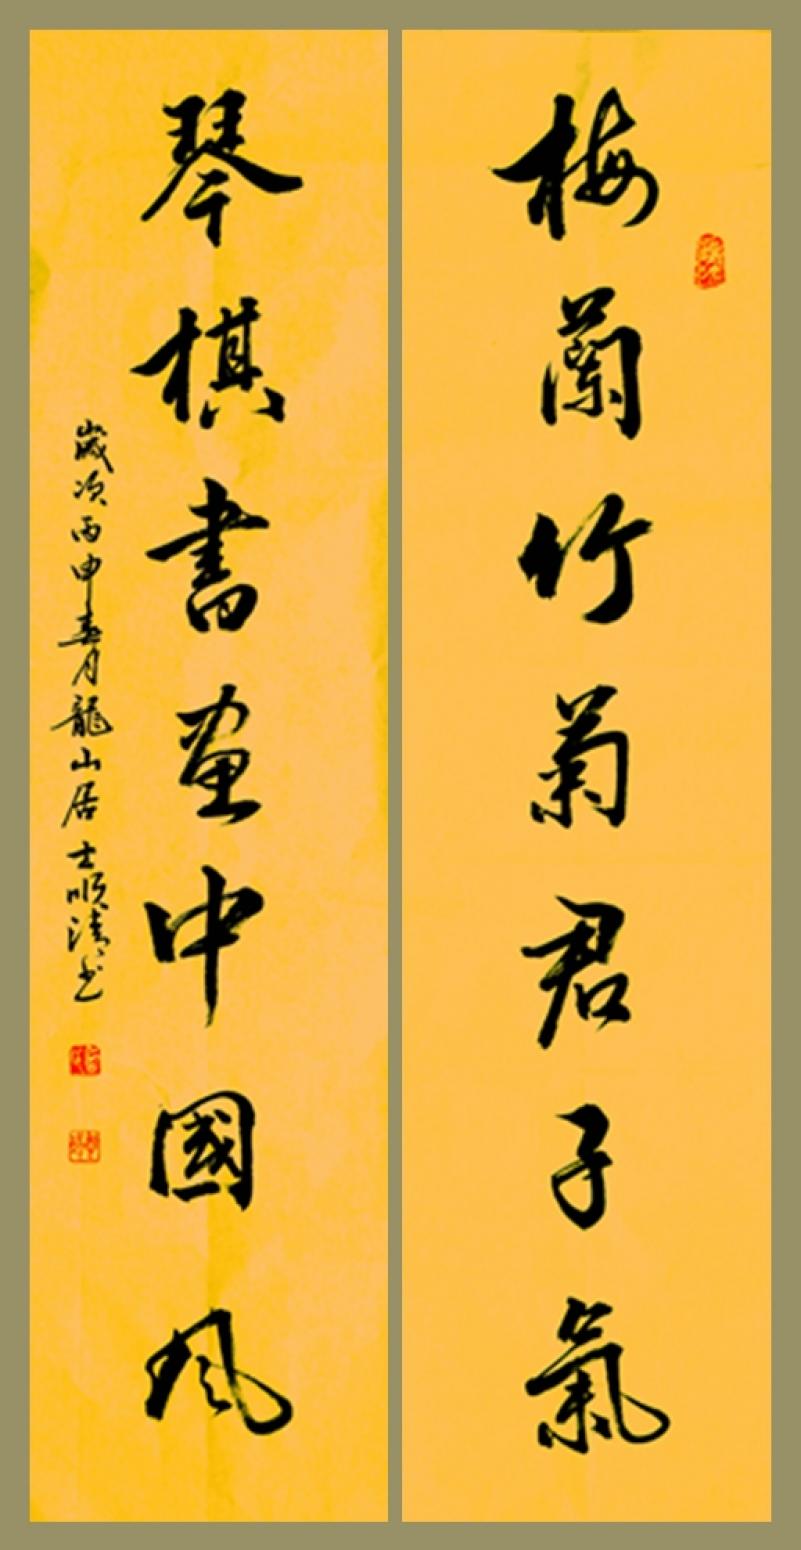 梅蘭竹菊君子氣
琴棋書畫中國風
歲次丙申春月龍山居士順清書